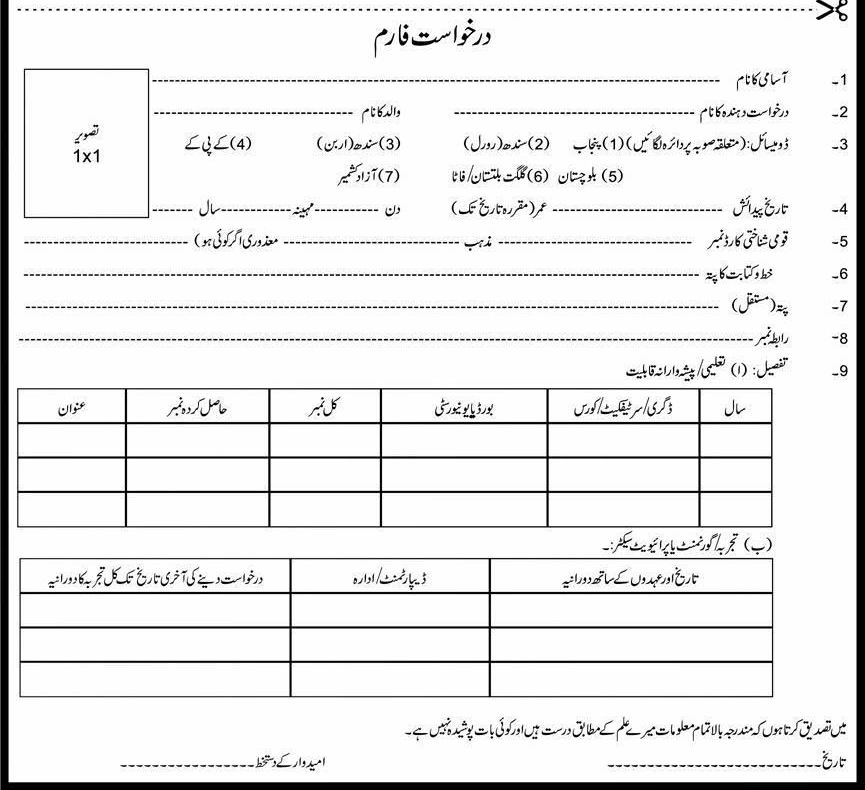 درخواست فارم
1۔ آسامی کا نام
2۔ درخواست دہندہ کا نام والد کا نام
تصویر
1x1
3۔ ڈومیسائل: (متعلقہ صوبہ پر دائرہ لگائیں) (1) پنجاب (2) سندھ (رورل) (3) سندھ (اربن) (4) کے پی کے
(5) بلوچستان (6) گلگت بلتستان/ فاٹا (7) آزاد کشمیر
4۔ تاریخ پیدائش عمر (مقررہ تاریخ تک) دن مہینہ سال
5۔ قومی شناختی کارڈ نمبر مذہب معذوری اگر کوئی ہو)
6۔ خط و کتابت کا پتہ
7۔ پتہ (مستقل)
8۔ رابطہ نمبر
9۔ تفصیل: (ا) تعلیمی/ پیشہ وارانہ قابلیت
سال ڈگری/ سرٹیفکیٹ/ کورس بورڈ یا یونیورسٹی کل نمبر حاصل کردہ نمبر عنوان
(ب) تجربہ/ گورنمنٹ یا پرائیویٹ سیکٹر:۔
تاریخ اور عہدوں کے ساتھ دورانیہ ڈیپارٹمنٹ/ ادارہ درخواست دینے کی آخری تاریخ تک کل تجربہ کا دورانیہ
میں تصدیق کرتا ہوں کہ مندرجہ بالا تمام معلومات میرے علم کے مطابق درست ہیں اور کوئی بات پوشیدہ نہیں ہے۔
تاریخ امیدوار کے دستخط